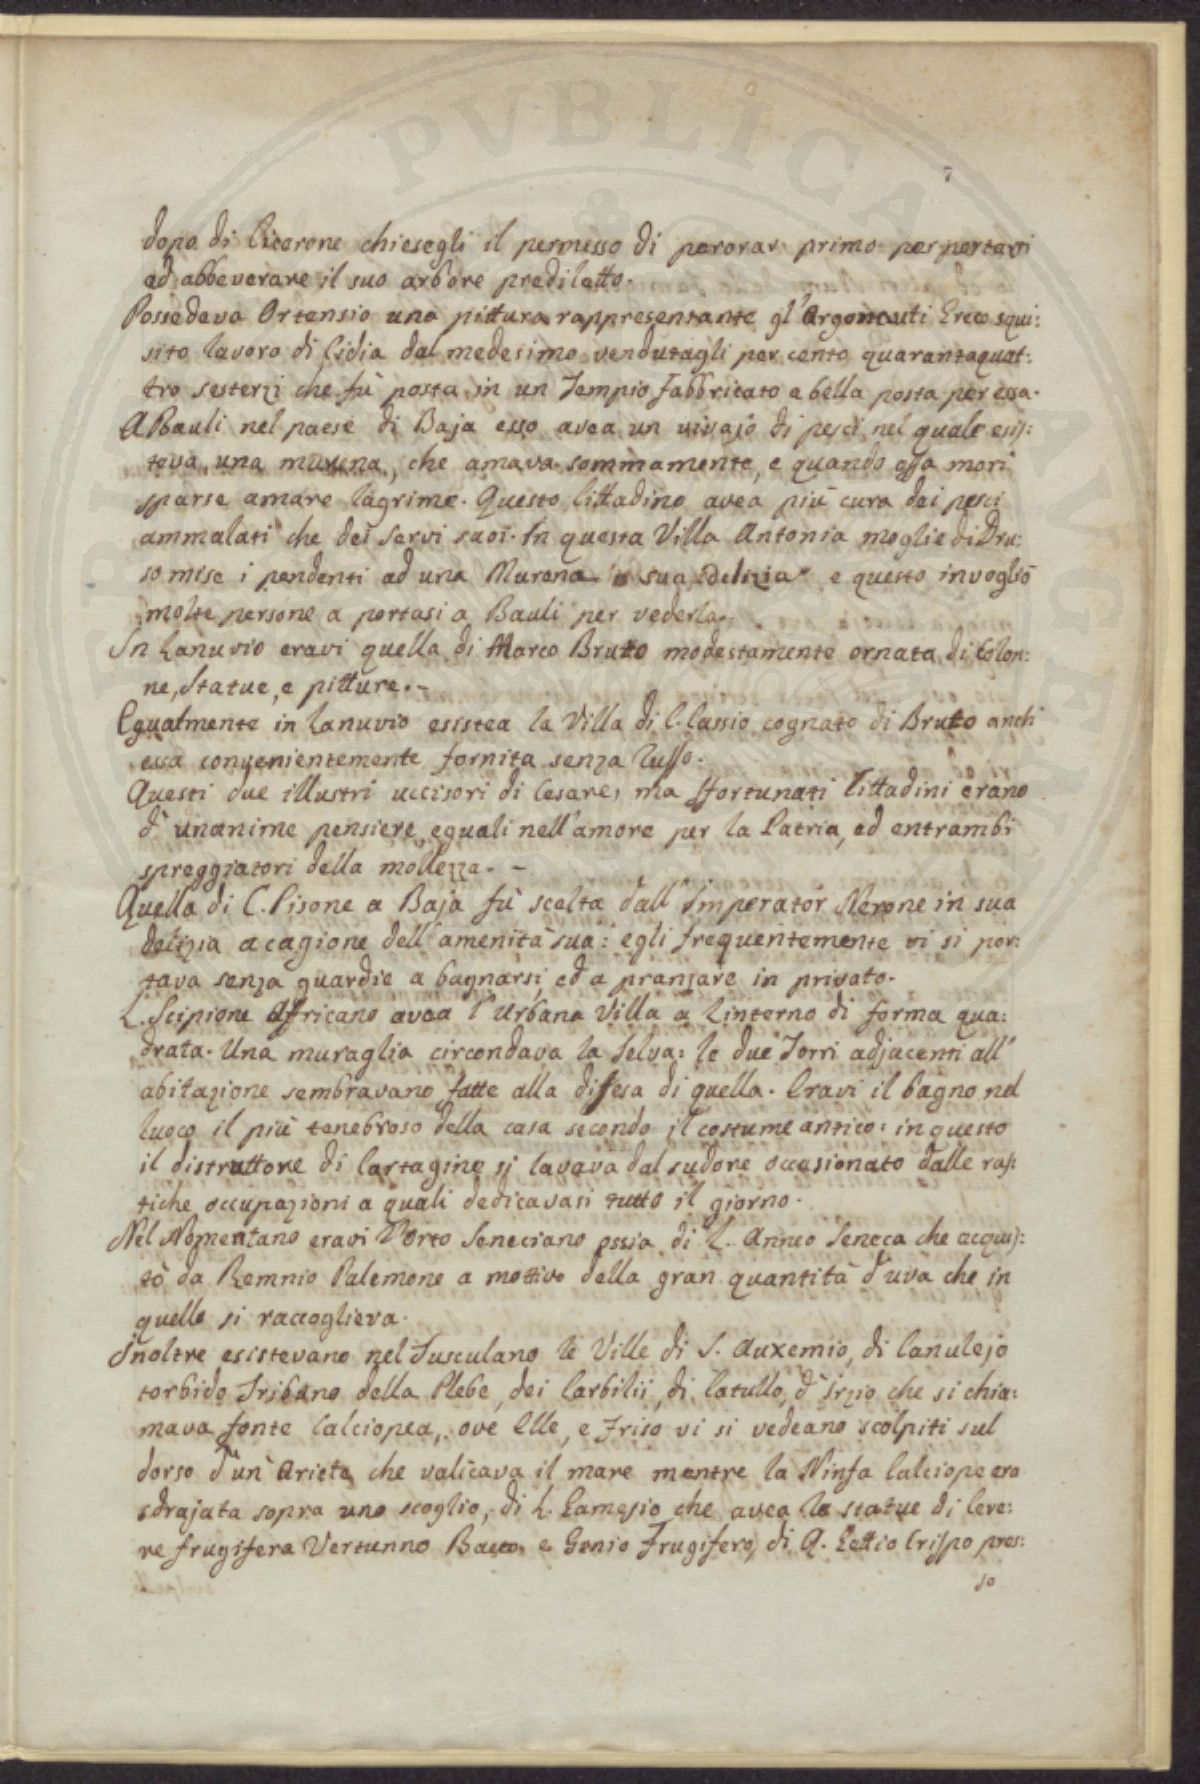 7
dopo di Cicerone chiesegli il permesso di perorar primo per portarsi
ad abbeverare il suo arbore prediletto.
Possedeva Ortensio una pittura rappresentante gl'Argonauti Ereo squi:
sito lavoro di Cidia dal medesimo vendutagli per cento quarantaquat:
tro sesterzi che fù posta in un Tempio fabbricato a bella posta per essa.
A Bauli nel paese di Baja esso avea un vivajo di pesci nel quale esis:
teva una murena, che amava sommamente, e quando essa morì
sparse amare lagrime. Questo Cittadino avea più cura dei pesci
ammalati che dei servi suoi. In questa Villa Antonia moglie di Dru:
so mise i pendenti ad una Murena sua delizia e questo invogliò
molte persone a portasi a Bauli per vederla.
In Lanuvio eravi quella di Marco Bruto modestamente ornata di Colon:
ne, Statue, e pitture. -
Egualmente in Lanuvio esistea la Villa di C. Cassio cognato di Bruto anch'
essa convenientemente fornita senza lusso.
Questi due illustri uccisori di Cesare, ma sfortunati Cittadini erano
d'unanime pensiere, eguali nell'amore per la Patria, ed entrambi
spreggiatori della mollezza. -
Quella di C. Pisone a Baja fù scelta dall'Imperator Nerone in sua
delizia a cagione dell'amenità sua: egli frequentemente vi si por:
tava senza guardie a bagnarsi, ed a pranzare in privato.
L. Scipione Africano avea l'Urbana Villa a Linterno di forma qua:
drata. Una muraglia circondava la Selva: le due Torri adjacenti all'
abitazione sembravano fatte alla difesa di quella. Eravi il bagno nel
luoco il più tenebroso della casa secondo il costume antico: in questo
il distruttore di Cartagine si lavava dal sudore occasionato dalle rus:
tiche occupazioni a quali dedicavasi tutto il giorno.
Nel Nomentano eravi l'Orto Seneciano ossia di L. Anneo Seneca che acquis:
tò da Remnio Palemone a mottivo della gran quantità d'uva che in
quello si raccoglieva.
Inoltre esistevano nel Tusculano le Ville di S. Auxemio, di Canulejo
torbido Tribuno della Plebe, dei Carbilii, di Catullo, d'Irzio che si chia:
mava fonte Calciopea, ove Elle, e Friso vi si vedeano scolpiti sul
dorso d'un'Ariete che valicava il mare mentre la Ninfa Calciope era
sdrajata sopra uno scoglio, di L. Gamesio che avea le statue di Cere:
re frugifera Vertunno Bacco, e Genio Frugifero, di Q. Vettio Crispo pres:
so
PVBLICA